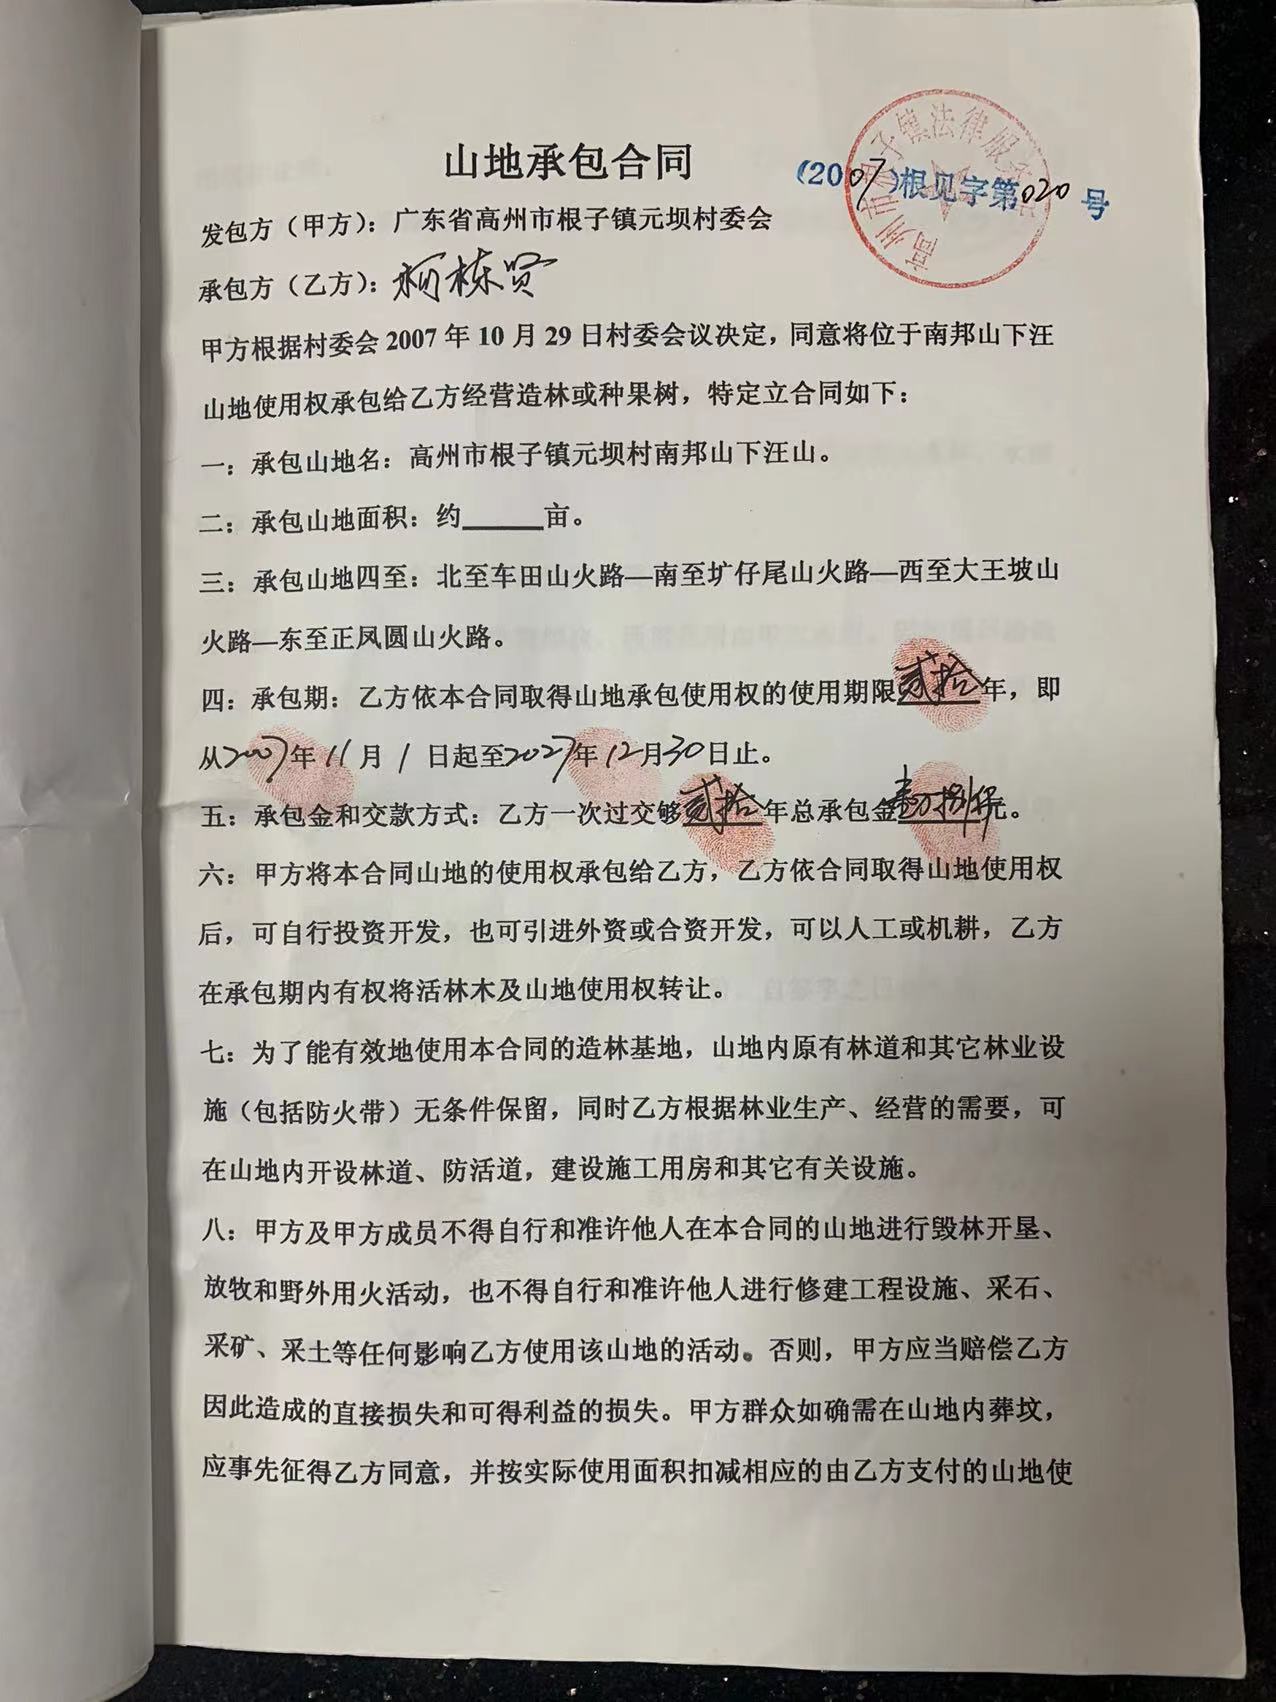 山地承包合同
(2007)根见字第020号
高州市根子镇法律服务
发包方（甲方）：广东省高州市根子镇元坝村委会
承包方（乙方）：柯栋贤
甲方根据村委会2007年10月29日村委会议决定，同意将位于南邦山下汪
山地使用权承包给乙方经营造林或种果树，特定立合同如下：
一：承包山地名：高州市根子镇元坝村南邦山下汪山。
二：承包山地面积：约______亩。
三：承包山地四至：北至车田山火路—南至圹仔尾山火路—西至大王坡山
火路—东至正凤圆山火路。
四：承包期：乙方依本合同取得山地承包使用权的使用期限贰拾年，即
从2007年11月1日起至2027年12月30日止。
五：承包金和交款方式：乙方一次过交够贰拾年总承包金壹万捌仟元。
六：甲方将本合同山地的使用权承包给乙方，乙方依合同取得山地使用权
后，可自行投资开发，也可引进外资或合资开发，可以人工或机耕，乙方
在承包期内有权将活林木及山地使用权转让。
七：为了能有效地使用本合同的造林基地，山地内原有林道和其它林业设
施（包括防火带）无条件保留，同时乙方根据林业生产、经营的需要，可
在山地内开设林道、防活道，建设施工用房和其它有关设施。
八：甲方及甲方成员不得自行和准许他人在本合同的山地进行毁林开垦、
放牧和野外用火活动，也不得自行和准许他人进行修建工程设施、采石、
采矿、采土等任何影响乙方使用该山地的活动。否则，甲方应当赔偿乙方
因此造成的直接损失和可得利益的损失。甲方群众如确需在山地内葬坟，
应事先征得乙方同意，并按实际使用面积扣减相应的由乙方支付的山地使